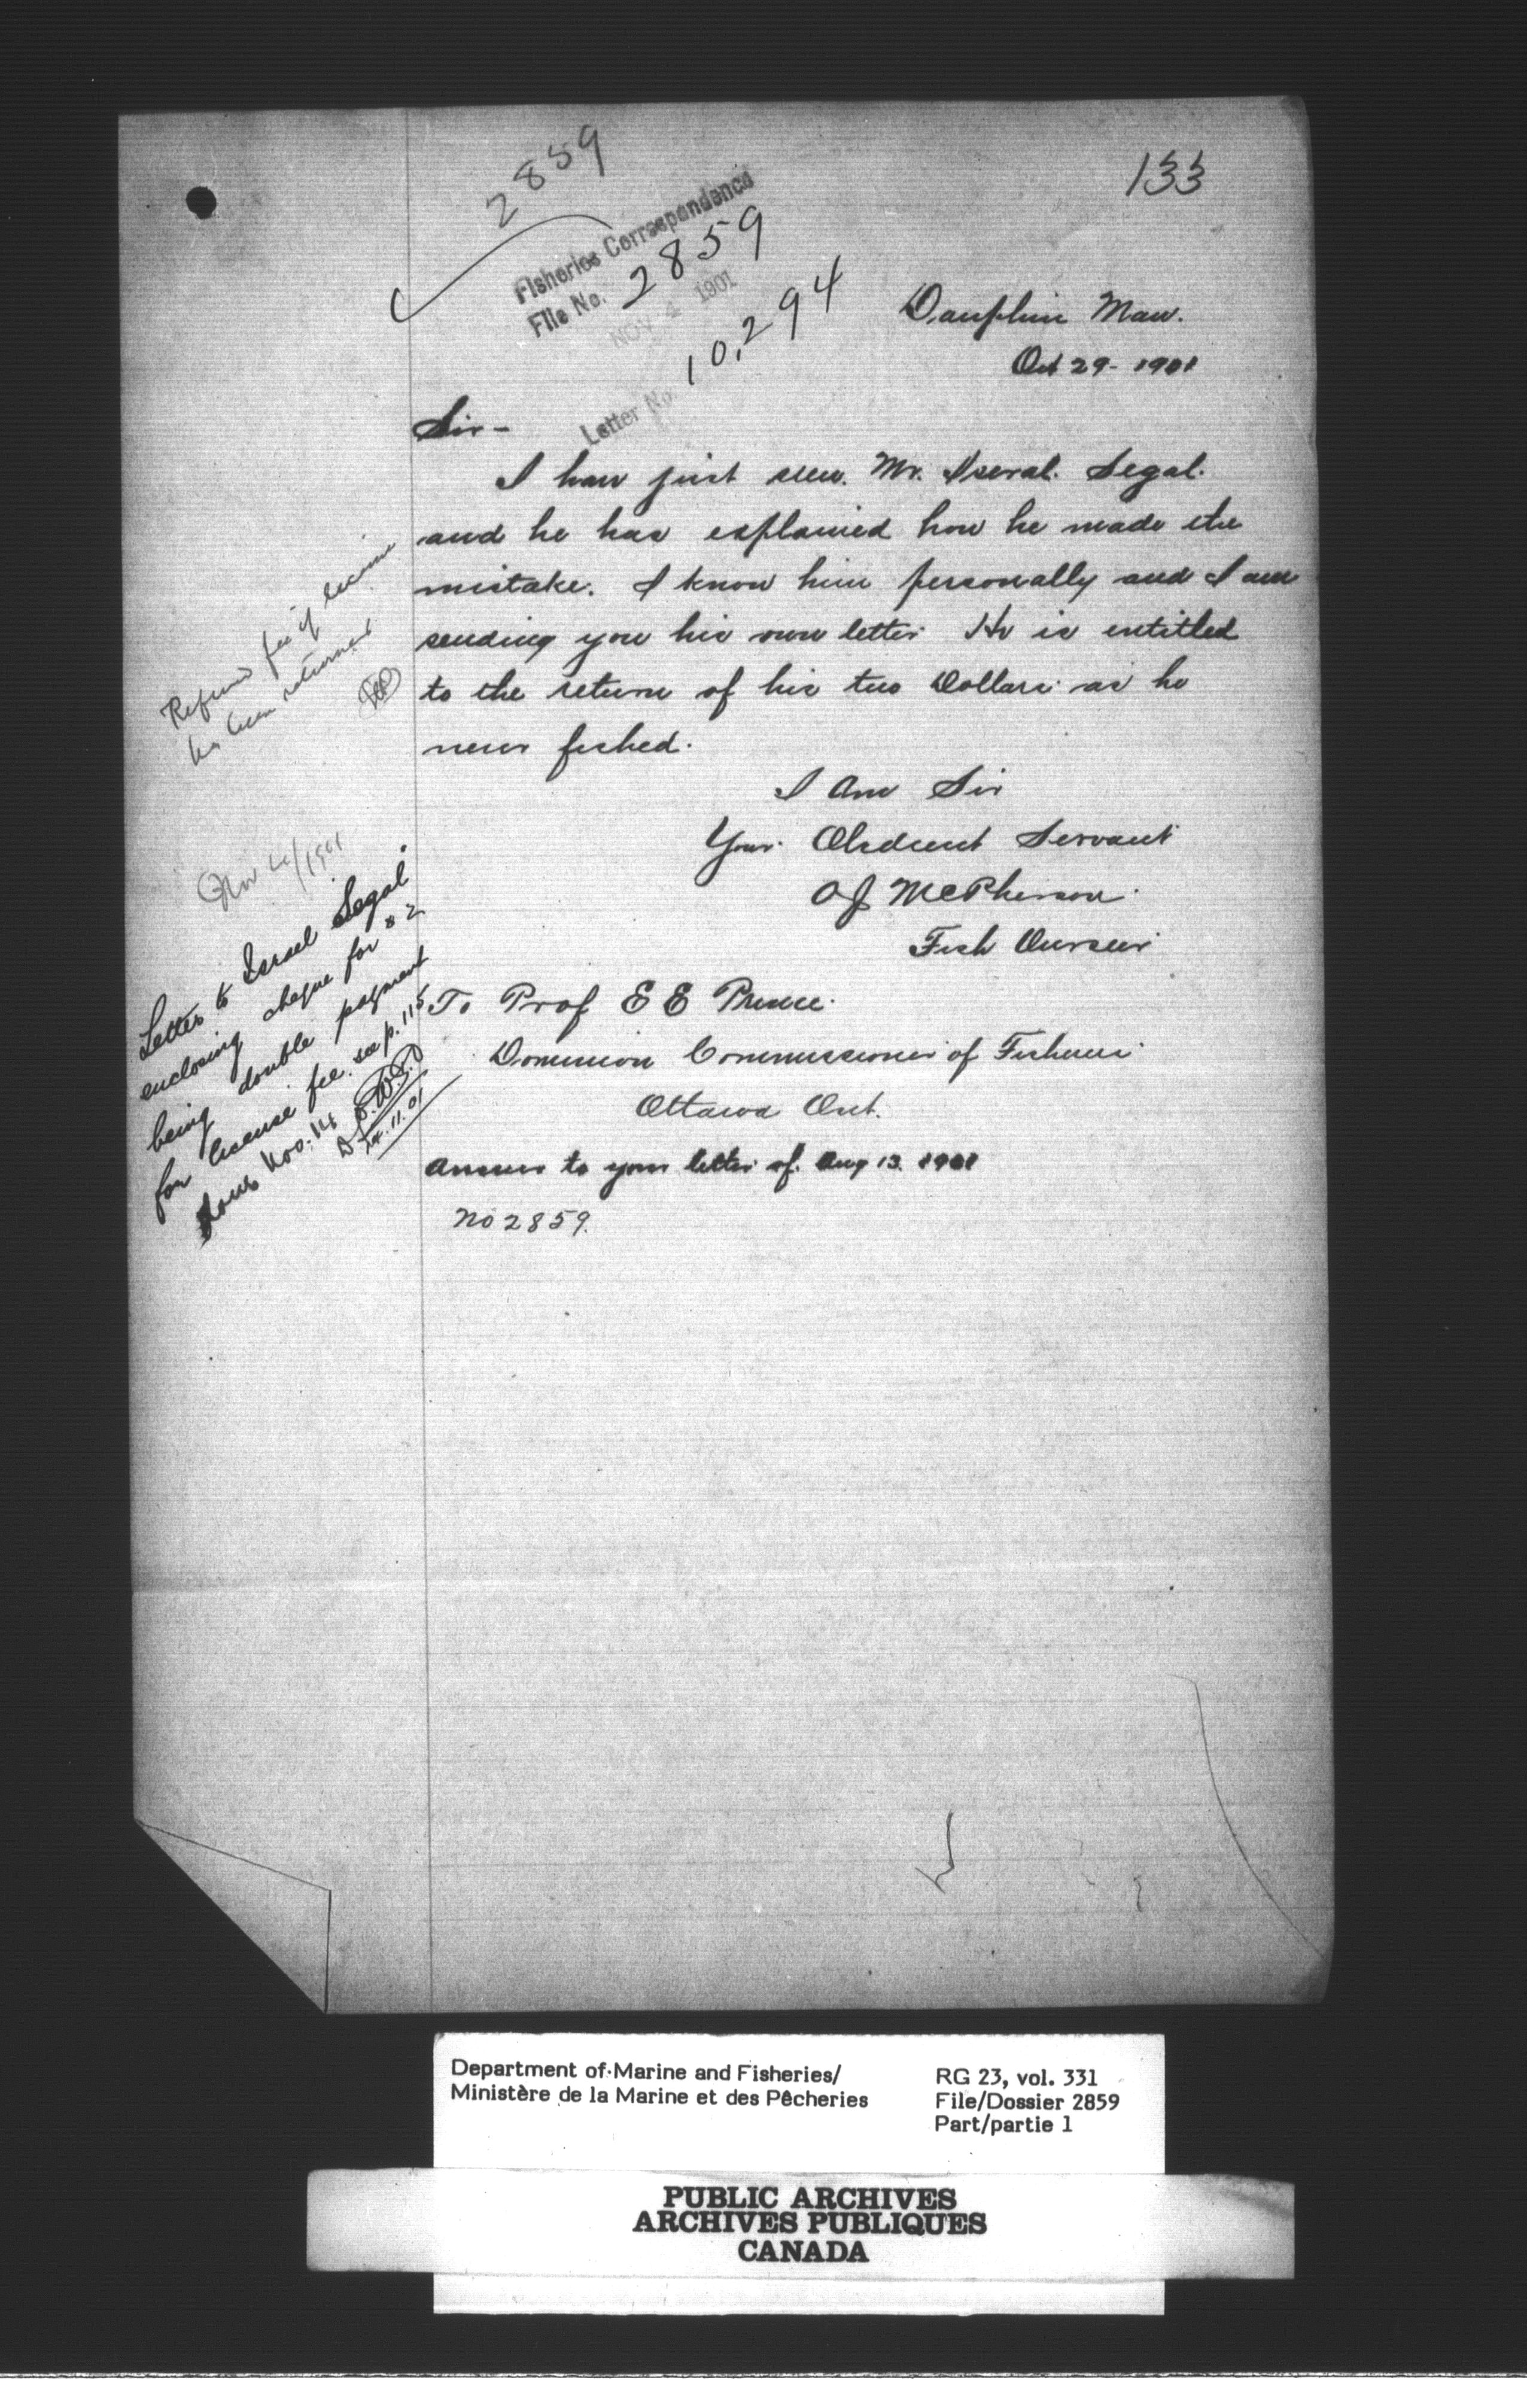 2859
133
Fisheries Correspondence
File No. 2859
NOV 4 1901
Letter No. 10,294
Dauphin Man.
Oct 29 - 1901
Sir -
I have just seen Mr. Iseral Segal.
and he has explained how he made the
mistake. I know him personally and I am
sending you his own letter. He is entitled
to the return of his two Dollars as he
never fished.
I Am Sir
Your Obedient Servant
McPherson
Fish Overseer
To Prof E E Prince
Dominion Commissioner of Fisheries
Ottawa Ont.
Answer to your letter of. Aug 13. 1901
No 2859.
Refund fee if license
has been returned
Nov 4/1901
Letter to Israel Segal
enclosing cheque for $2
being double payment
for license fee. see p. 115
Nov. 14
14.11.01
Department of Marine and Fisheries/
Ministère de la Marine et des Pêcheries
RG 23, vol. 331
File/Dossier 2859
Part/partie 1
PUBLIC ARCHIVES
ARCHIVES PUBLIQUES
CANADA